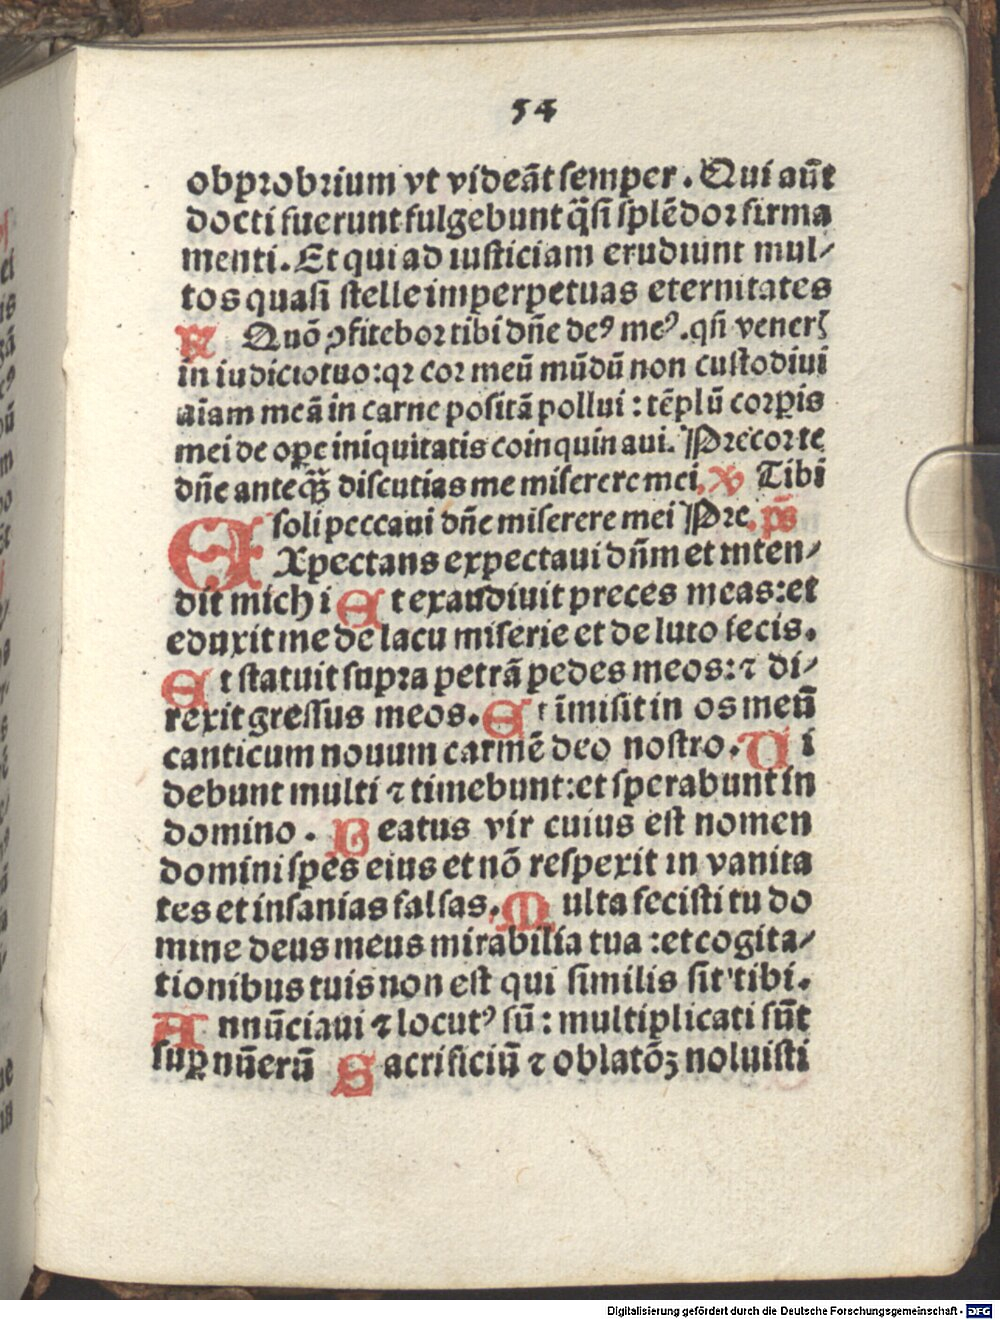 54
obprobrium vt videāt semper. Qui aūt
docti fuerunt fulgebunt q̄si splēdor firma
menti. Et qui ad iusticiam erudiunt mul/
tos quasi stelle imperpetuas eternitates
R Quō ꝯfitebor tibi dn̄e deꝰ meꝰ .qn̄ venerꝭ
in iudicio tuo: qꝛ cor meū mūdū non custodiui
aīam meā in carne positā pollui : tēplū corꝑis
mei de oꝑe iniquitatis coinquinaui. Precor te
dn̄e anteq̄ꝫ discutias me miserere mei, V Tibi
soli peccaui dn̄e miserere mei Pre. ps
EXpectans expectaui dn̄m et inten/
dit michi Et exaudiuit preces meas: et
eduxit me de lacu miserie et de luto fecis.
Et statuit supra petrā pedes meos: ⁊ di/
rexit gressus meos. Et īmisit in os meū
canticum nouum carmē deo nostro. Vi
debunt multi ⁊ timebunt: et sperabunt in
domino . Beatus vir cuius est nomen
domini spes eius et nō respexit in vanita
tes et insanias falsas. Multa fecisti tu do
mine deus meus mirabilia tua : et cogita/
tionibus tuis non est qui similis sit tibi.
Annūciaui ⁊ locutꝰ sū : multiplicati sūt
suꝑ nūerū Sacrificiū ⁊ oblatōꝫ noluisti
Digitalisierung gefördert durch die Deutsche Forschungsgemeinschaft - DFG